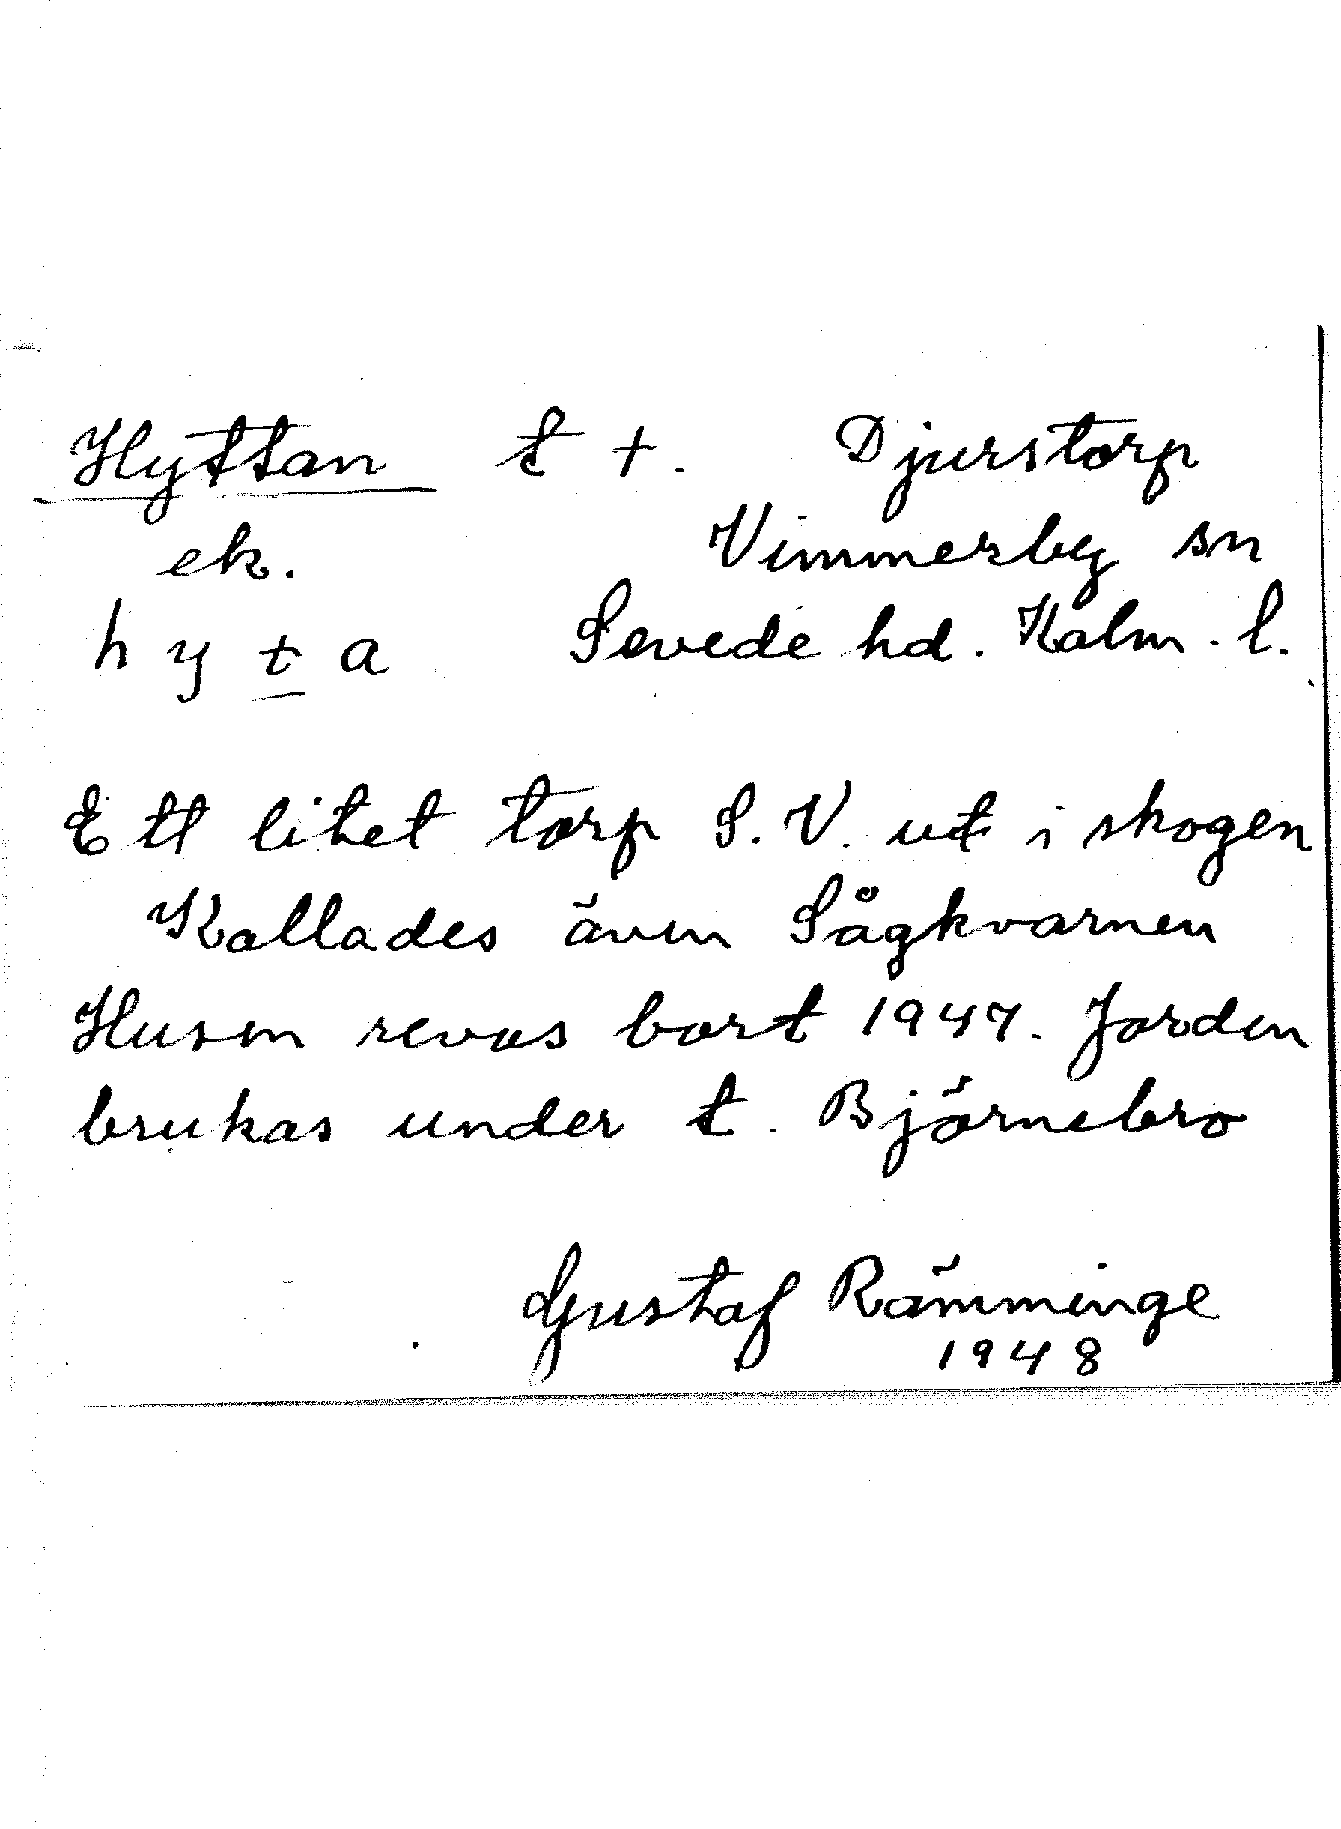 Hyttan t +. Djurstorp
ek. Vimmerby sn
hyta Sevede hd. Kalm. l.
Ett litet torp S.V. ut i skogen
Kallades även Sågkvarnen
Husen revos bort 1947. Jorden
brukas under t. Björnebro
Gustaf Rämminge
1948